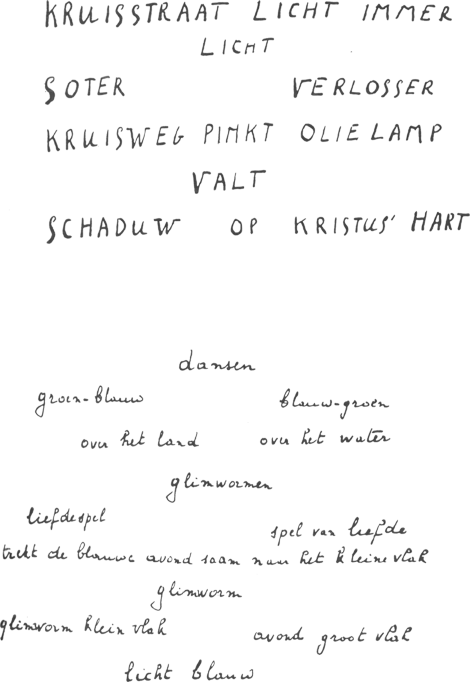 KRUISSTRAAT LICHT IMMER
LICHT
SOTER VERLOSSER
KRUISWEG PINKT OLIELAMP
VALT
SCHADUW OP KRISTUS' HART
dansen
groen-blauw blauw-groen
over het land over het water
glimwormen
liefdespel
spel van liefde
trekt de blauwe avond saam naar het kleine vlak
glimworm
glimworm klein vlak avond groot vlak
licht blauw